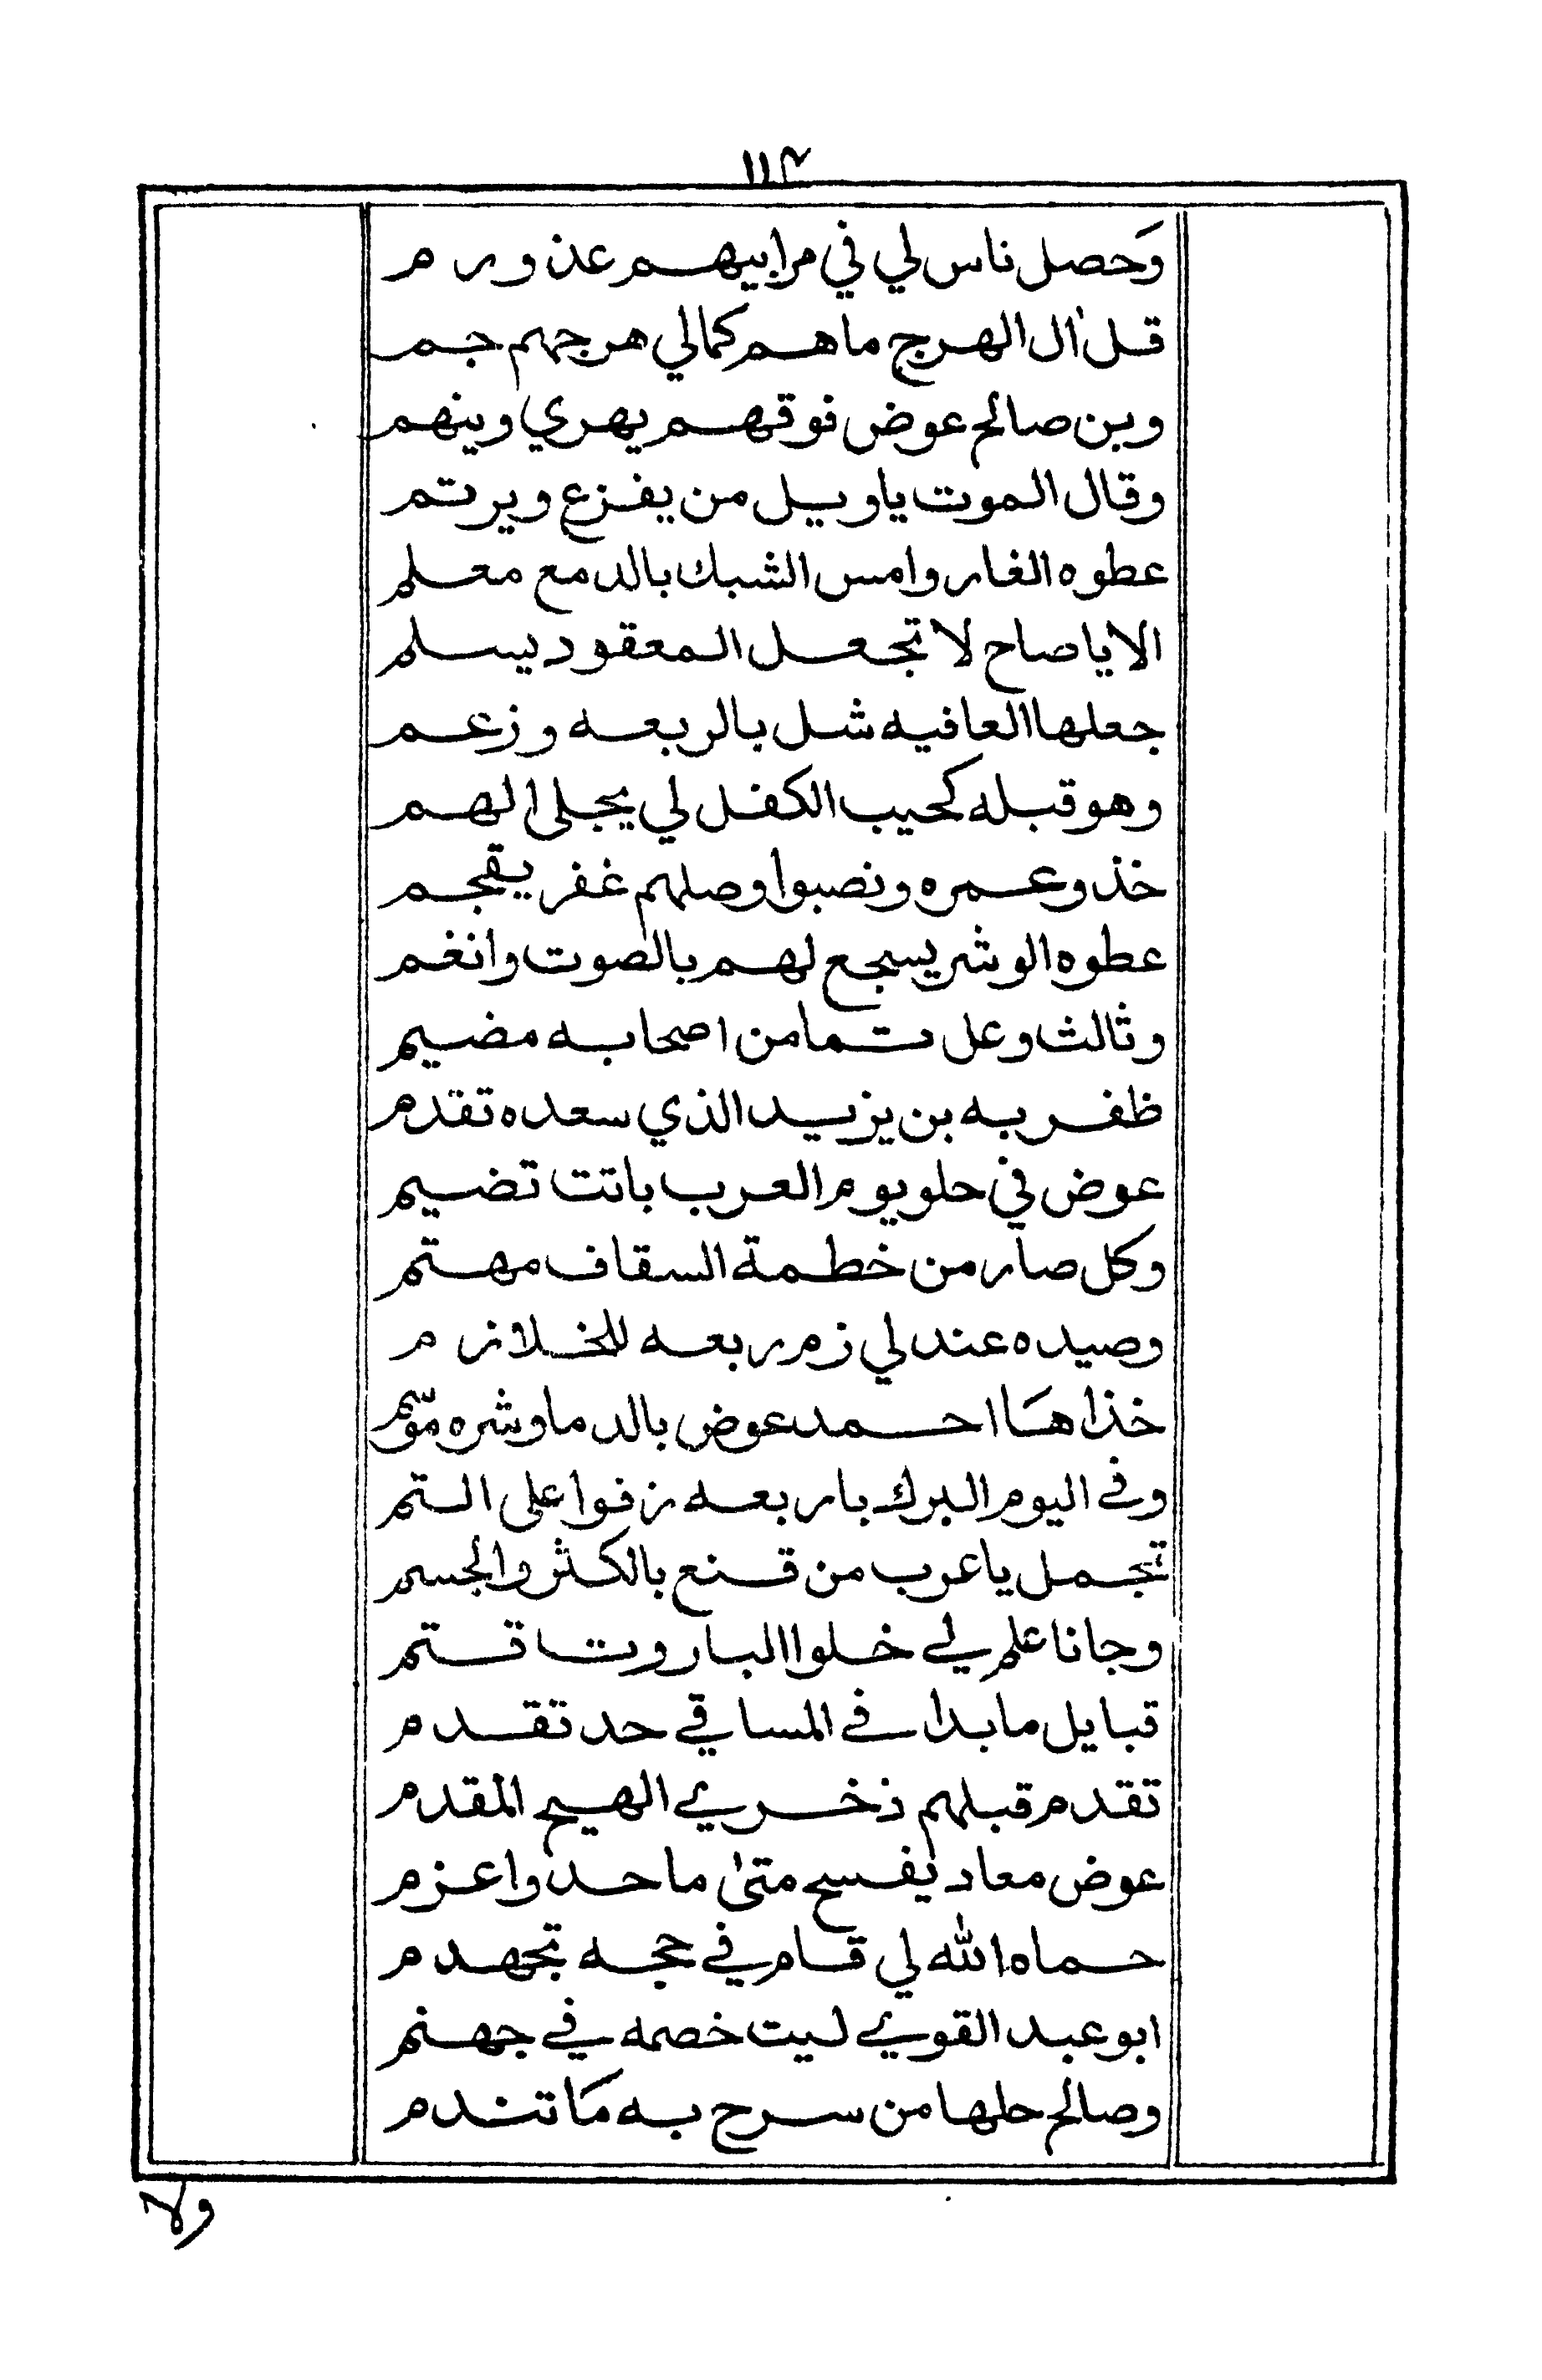 ١١٢
وَحصل ناس لي في مرابيهم عذ ورم
قل ال الهرج ماهم كمالي هرجهم جم
وبن صالح عوض فوقهم يهري وينهم
وقال الموت ياويل من يفزع ويرتم
عطوه الغار وامس الشبك بالدمع معلم
الا يا صاح لا تجعل المعقود يسلم
جعلها العافيه شل بالربعه وزعم
وهو قبله كحيب الكفل لي يجلى الهم
خذو عمره ونصبوا وصلهم غفر يقحم
عطوه الوشر يسجع لهم بالصوت وانغم
وثالث وعل تما من اصحابه مضيم
ظفر به بن يزيد الذي سعده تقدم
عوض في حلويوم العرب باتت تضيم
وكل صار من خطمة السقاف مهتم
وصيده عند لي زم ربعه للخلا زم
خذاهَا احمد عوض بالدما وشره موّسم
وفي اليوم البرك باربعه زفوا على التم
تجمل يا عرب من قنع بالكثر والجسم
وجانا علم لي خلوا الباروت قتم
قبايل ما بدا في المساقي حد تقدم
تقدم قبلهم ذخري الهيج المقدم
عوض معاد يفسح متى ما حد واعزم
حماه الله لي قام في حجه تجهدم
ابو عبد القوي ليت خصمه في جهنم
وصالح حلها من سرح به مَا تندم
ولا